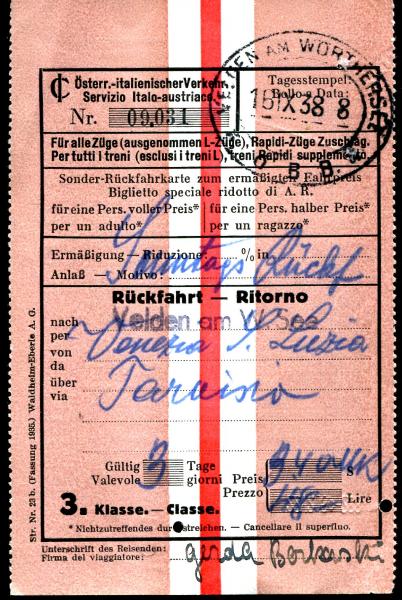 Österr.-italienischer Verkehr
Servizio Italo-austriaco
Nr. 09,031
Tagesstempel:
Bollo a Data:
VELDEN AM WÖRTHERSEE
16 IX 38 8
Für alle Züge (ausgenommen L-Züge), Rapidi-Züge Zuschlag.
Per tutti i treni (esclusi i treni L), treni Rapidi supplemento.
Sonder-Rückfahrkarte zum ermäßigten Fahrpreis
Biglietto speciale ridotto di A. R.
für eine Pers. voller Preis* / für eine Pers. halber Preis*
per un adulto* / per un ragazzo*
Ermäßigung — Riduzione: % in
Anlaß — Motivo:
Sonntags Rückf
Rückfahrt — Ritorno
nach Velden am W. See
per
von Venezia S. Luzia
da
über Tarvisio
via
Gültig 3 Tage
Valevole giorni
Preis S
Prezzo Lire
3. Klasse. — Classe.
* Nichtzutreffendes durchstreichen. — Cancellare il superfluo.
Unterschrift des Reisenden:
Firma del viaggiatore:
Gerda
Str. Nr. 23 b. (Fassung 1935.) Waldheim-Eberle A. G.